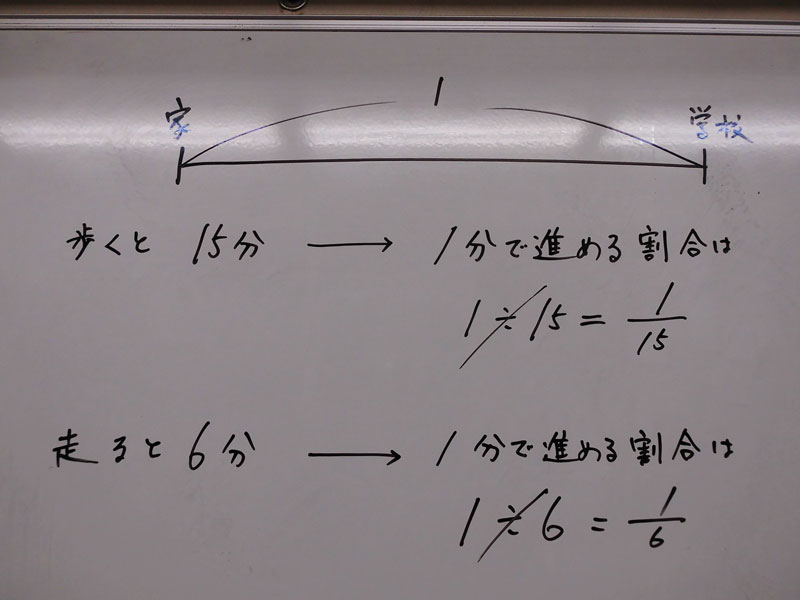 1
家 学校
歩くと 15分 → 1分で進める割合は
1÷15=1/15
走ると 6分 → 1分で進める割合は
1÷6=1/6